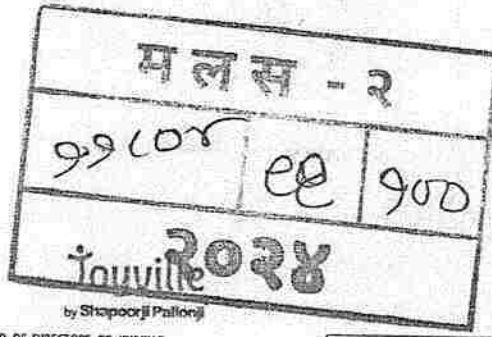 मलस - २
११८०४ ९९ १००
२०२४
Joyville
by Shapoorji Pallonji